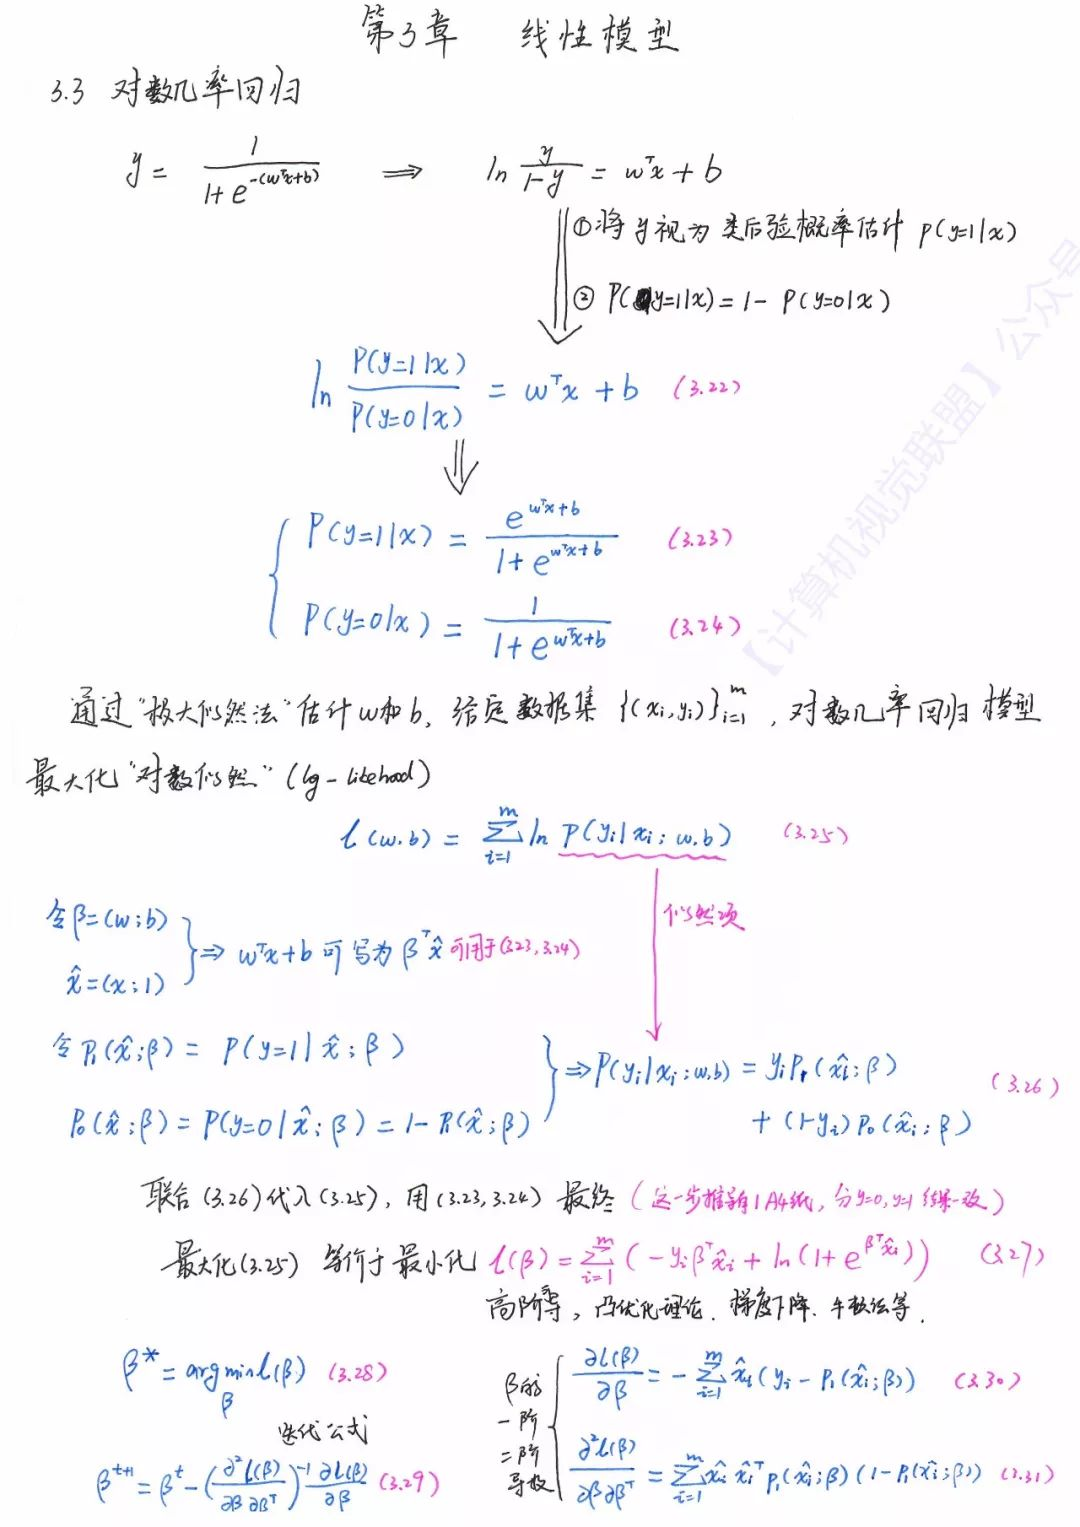 第3章 线性模型
3.3 对数几率回归
y = 1 / (1+e^{-(wᵀx+b)}) ⟹ ln y/(1-y) = wᵀx + b
①将y视为类后验概率估计 p(y=1|x)
② P(y=1|x) = 1 - P(y=0|x)
ln P(y=1|x) / P(y=0|x) = wᵀx + b (3.22)
P(y=1|x) = e^{wᵀx+b} / (1+e^{wᵀx+b}) (3.23)
P(y=0|x) = 1 / (1+e^{wᵀx+b}) (3.24)
通过"极大似然法"估计w和b, 给定数据集 {(xᵢ,yᵢ)}ᵢ₌₁ᵐ, 对数几率回归模型
最大化"对数似然" (lg-likehood)
ℓ(w,b) = Σᵢ₌₁ᵐ ln P(yᵢ|xᵢ; w,b) (3.25)
似然项
令β=(w;b)
x̂=(x;1)
⇒ wᵀx+b 可写为 βᵀx̂ 可用于(3.23,3.24)
令 P₁(x̂;β) = P(y=1|x̂;β)
P₀(x̂;β) = P(y=0|x̂;β) = 1-P₁(x̂;β)
⇒ P(yᵢ|xᵢ;w,b) = yᵢP₁(x̂ᵢ;β)
+ (1-yᵢ)P₀(x̂ᵢ;β) (3.26)
联合(3.26)代入(3.25), 用(3.23,3.24) 最终 (这一步推导有1A4纸, 分y=0,y=1 结果一致)
最大化(3.25) 等价于最小化 ℓ(β) = Σᵢ₌₁ᵐ (-yᵢβᵀx̂ᵢ + ln(1+e^{βᵀx̂ᵢ})) (3.27)
高阶导, 凸优化理论. 梯度下降. 牛顿法等.
β* = argmin_β ℓ(β) (3.28)
迭代公式
β^{t+1} = β^t - (∂²ℓ(β)/∂β∂βᵀ)⁻¹ ∂ℓ(β)/∂β (3.29)
β的
一阶
二阶
导数
∂ℓ(β)/∂β = -Σᵢ₌₁ᵐ x̂ᵢ(yᵢ - P₁(x̂ᵢ;β)) (3.30)
∂²ℓ(β)/∂β∂βᵀ = Σᵢ₌₁ᵐ x̂ᵢx̂ᵢᵀ P₁(x̂ᵢ;β)(1-P₁(x̂ᵢ;β)) (3.31)
【计算机视觉联盟】公众号